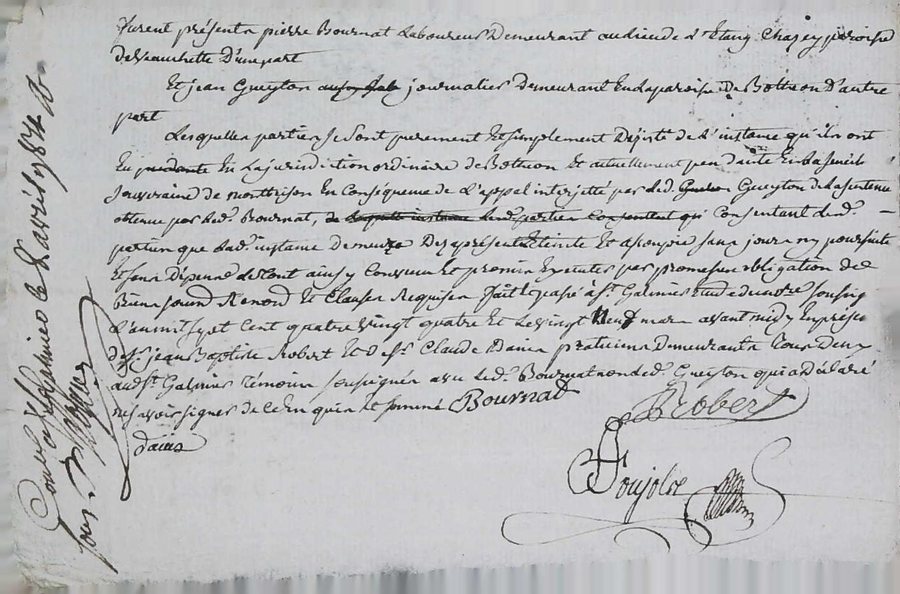 furent présents pierre Bournat Laboureur Demeurant au lieu de l'Etang Chazey paroisse
de Veauchette D'une part
Et jean Gueyton journalier Demeurant En La paroise De Botheon D'autre
part
Lesquelles parties se sont purement Et simplement Déjsté de L'instance qu'ils ont
En La jurisdiction ordinaire de Botheon Et actuellement pendante En La Sénéch
souveraine de montbrison En Conséquence de L'appel interjetté par led. Gueyton de La sentence
obtenue par led. Bournat, de laquelle instance lesd. parties Consentent qui Consentant lesd.
parties que lad. instance demeure Des àprésent Eteinte Et assoupie sans jour ny poursuitte
Et sans Dépens de tout ainsy Convenu Et promis Executer par promesses obligation de
Biens soumis Renond Et Clauses Requises fait Et passé à St. Galmier Etude du no.re soussig
L'an mil sept Cent quatre vingt quatre Et Le vingt Neuf mars avant midy En prése
de Sr. jean Baptiste Robert Et de Sr. Claude Davier praticiens Demeurants tous Deux
aud. St. Galmier témoins soussignés avec led. Bournat non led. Gueyton qui a déclaré
ne savoir signer de Ce En quis Et sommé Bournat
Robert
Ponjolse
Conl. a St galmier le 2 avril 1784